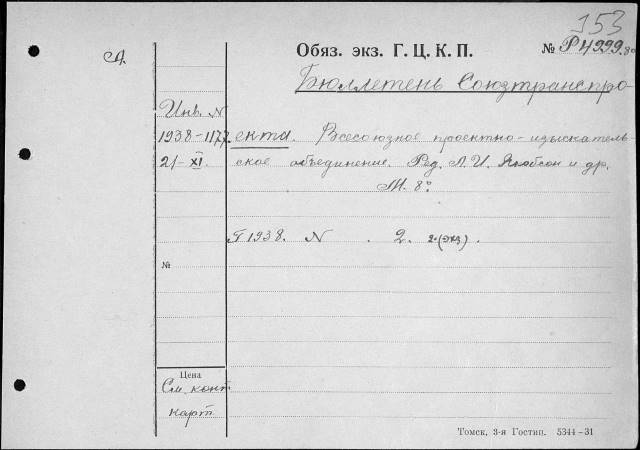 153
А.
Обяз. экз. Г. Ц. К. П.
№ Р4299.80
Бюллетень Союзтранспро-
Инв. N
1938-1177.
21-XI.
екта. Всесоюзное проектно-изыскатель-
ское объединение. Ред. Л. И. Якобсон и др.
М. 8°
Г 1938. N . 2. 2.(экз).
№
Цена
См. конт.
карт.
Томск, 3-я Гостип. 5344-31